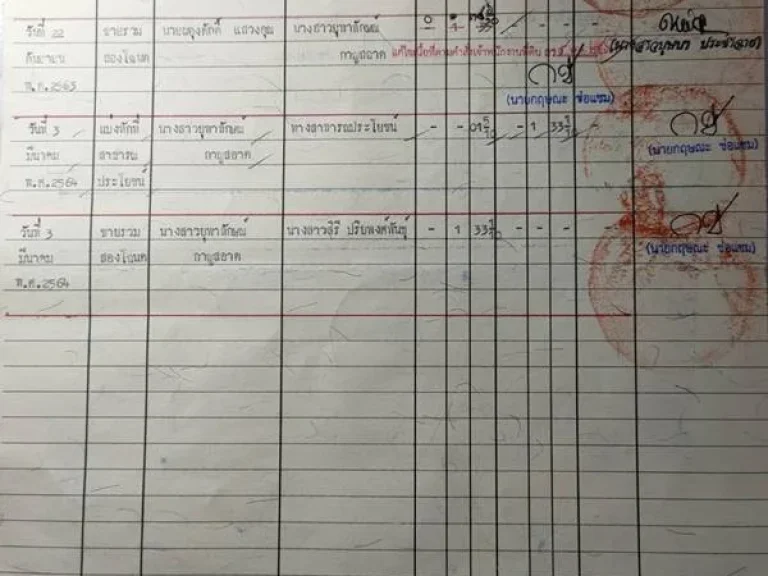 วันที่ 22 ขายรวม นายผดุงศักดิ์ แสวงคุณ นางสาวยุพาลักษณ์ - -
กันยายน สองโฉนด กาญสอาด แก้ไขเนื้อที่ตามคำสั่งเจ้าพนักงานที่ดิน (นางสาวบุษบา ประชำลาย)
พ.ศ.2563 (นายกฤษณะ ช่อแซม)
วันที่ 3 แบ่งหักที่ นางสาวยุพาลักษณ์ ทางสาธารณประโยชน์ - - 01 5/10 - 1 33 5/10 - (นายกฤษณะ ช่อแซม)
มีนาคม สาธารณ กาญสอาด
พ.ศ.2564 ประโยชน์
วันที่ 3 ขายรวม นางสาวยุพาลักษณ์ นางสาวสุรี ปริยพงศ์พันธุ์ - 1 33 5/10 - - - - (นายกฤษณะ ช่อแซม)
มีนาคม สองโฉนด กาญสอาด
พ.ศ.2564